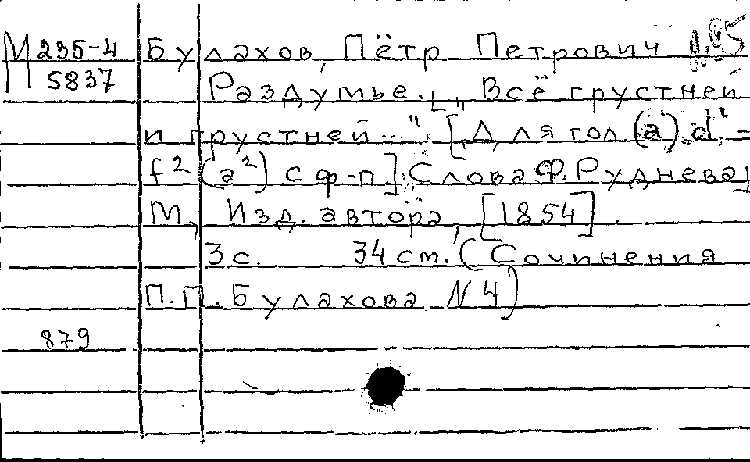 М 235-4 Булахов, Пётр Петрович
5837 Раздумье. [„Всё грустней
и грустней..." [Для гол (а) d¹-
f² (а²) с ф-п]. Слова Ф. Руднева]
М., Изд. автора, [1854].
3 с. 34 см. (Сочинения
П.П. Булахова N 4)
879